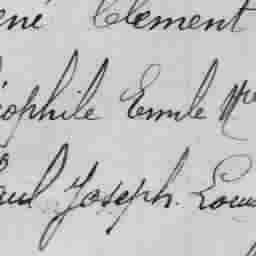 ené Clement
éophile Emile Mre
aul Joseph. Lou